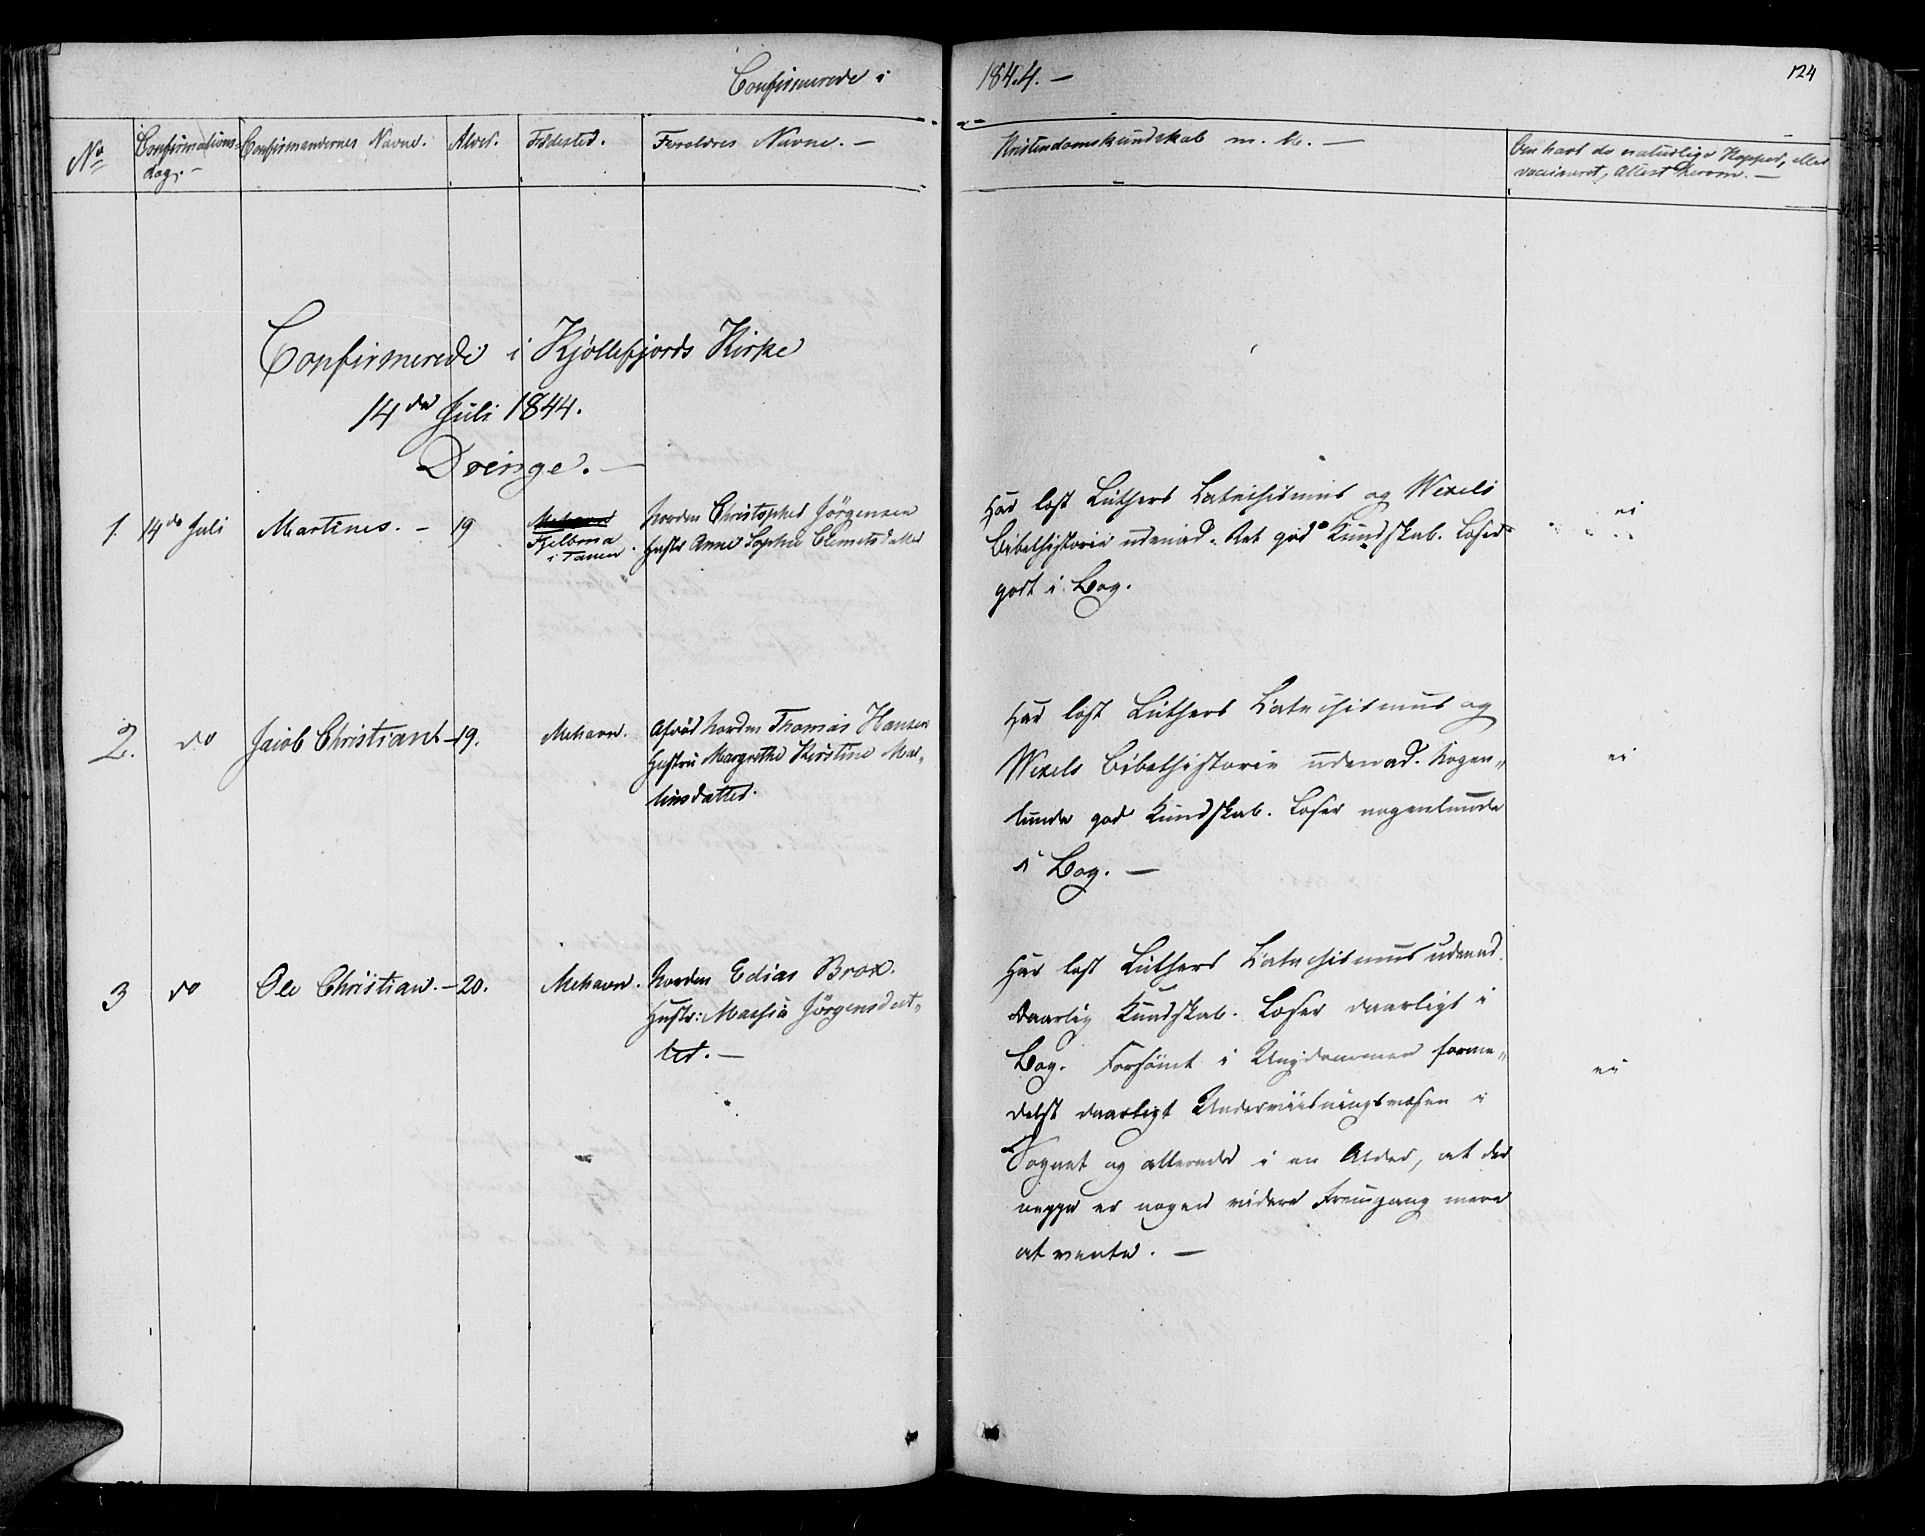 Confirmerede i 1844. —
124
No
Confirmations-
dag. —
Confirmandernes Navne.
Alder.
Födested.
Forældres Navne. —
Kristendomskundskab m. v. —
Om havt de naturlige Kopper, eller
vaccineret, Attest herom. —
Confirmerede i Kjöllefjords Kirke
14de Juli 1844.
Drenge. —
1. 14de Juli Martines. — 19
i Tanen.
Normden Christopher Jörgensen
Hustr Anne Sophie Clemetsdatter
Har læst Luthers Catechismus og Wexels
Bibelhistorie udenad. Ret god Kundskab. Læser
godt i Bog.
ei
2. do Jacob Christian — 19. Mehavn.
Afdöd Normden Thomas Hansen
Hustru Margrethe Kirstine Mar„
tinsdatter.
Har læst Luthers Catechismus og
Wexels Bibelhistorie udenad. Nogen„
lunde god Kundskab. Læser nogenlunde
i Bog. —
ei
3 do Ole Christian. — 20. Mehavn.
Normden Edias Brox.
Hustr: Jörgensdat„
ter. —
Har læst Luthers Catechismus udenad.
Daarlig Kundskab. Læser daarligt i
Bog. Forsömt i Ungdommen forme„
delst daarligt Underviisningsvæsen i
Sognet og allerede i en Alder, at der
neppe er nogen videre Fremgang mere
at vente. —
ei